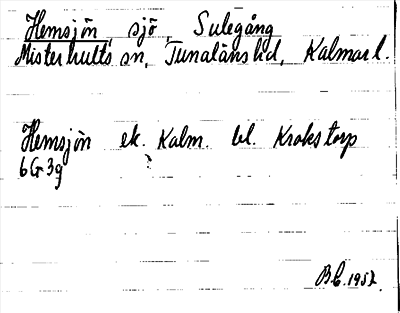 Hemsjön, sjö, Sulegång
Misterhults sn, Tunaläns hd, Kalmar l.
Hemsjön ek. Kalm. bl. Krokstorp
6G3g
B.C. 1952.